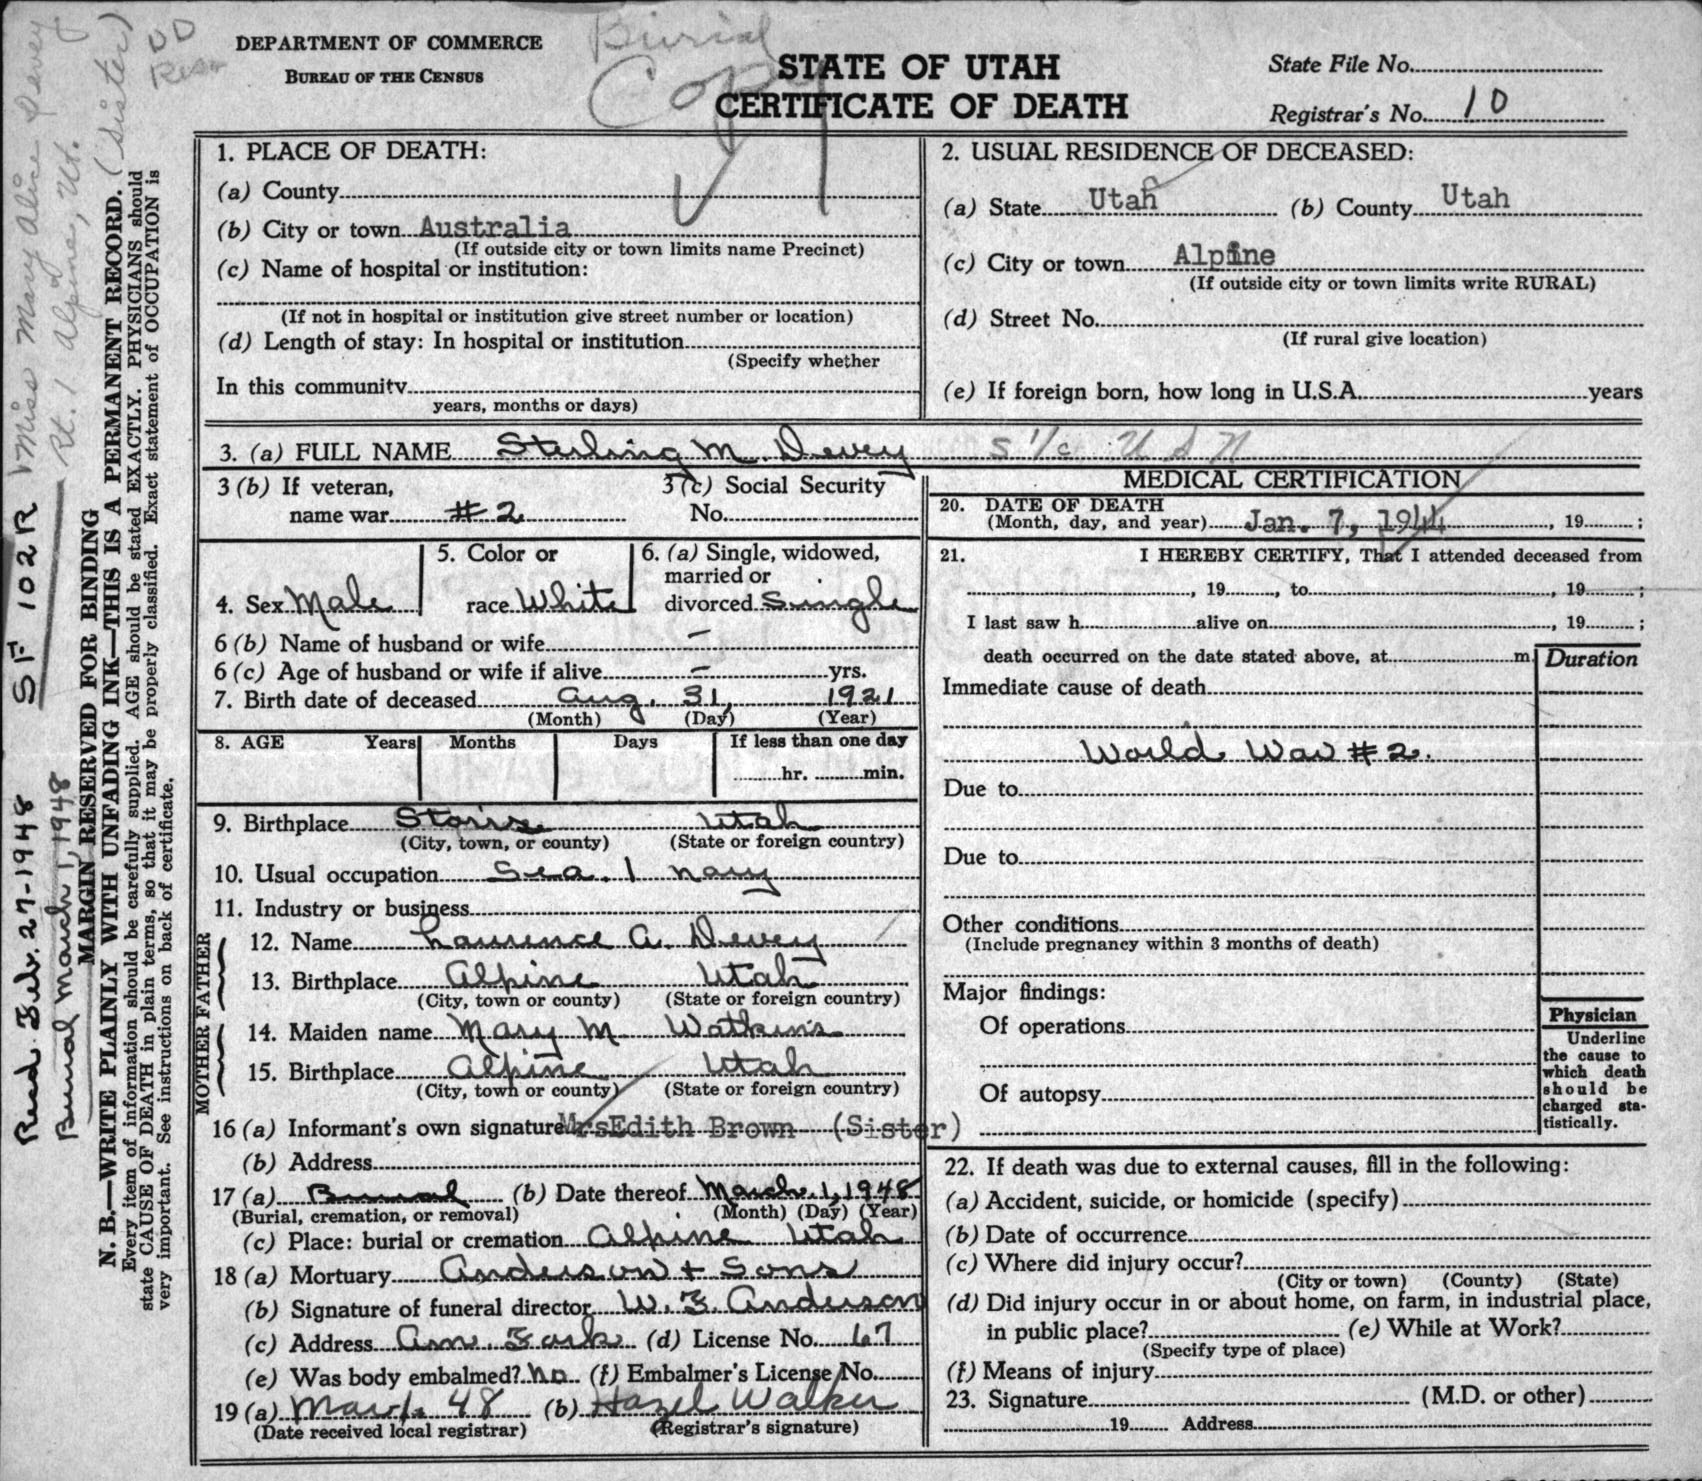 DEPARTMENT OF COMMERCE
BUREAU OF THE CENSUS
Burial
Copy
STATE OF UTAH
CERTIFICATE OF DEATH
State File No.
Registrar's No. 10
1. PLACE OF DEATH:
(a) County
(b) City or town Australia
(If outside city or town limits name Precinct)
(c) Name of hospital or institution:
(If not in hospital or institution give street number or location)
(d) Length of stay: In hospital or institution
(Specify whether
In this community
years, months or days)
2. USUAL RESIDENCE OF DECEASED:
(a) State Utah (b) County Utah
(c) City or town Alpine
(If outside city or town limits write RURAL)
(d) Street No.
(If rural give location)
(e) If foreign born, how long in U.S.A. years
3. (a) FULL NAME Sterling M. Devey S 1/c USN
3 (b) If veteran,
name war #2
3 (c) Social Security
No.
4. Sex Male
5. Color or
race White
6. (a) Single, widowed,
married or
divorced Single
6 (b) Name of husband or wife –
6 (c) Age of husband or wife if alive – yrs.
7. Birth date of deceased Aug. 31, 1921
(Month) (Day) (Year)
8. AGE Years Months Days If less than one day
hr. min.
9. Birthplace Storrs Utah
(City, town, or county) (State or foreign country)
10. Usual occupation Sea. 1 navy
11. Industry or business
FATHER
12. Name Laurence A. Devey
13. Birthplace Alpine Utah
(City, town or county) (State or foreign country)
MOTHER
14. Maiden name Mary M. Watkins
15. Birthplace Alpine Utah
(City, town or county) (State or foreign country)
16 (a) Informant's own signature MrsEdith Brown (Sister)
(b) Address
17 (a) Burial (b) Date thereof March. 1, 1948
(Burial, cremation, or removal) (Month) (Day) (Year)
(c) Place: burial or cremation Alpine Utah
18 (a) Mortuary Anderson + Sons
(b) Signature of funeral director W. F. Anderson
(c) Address Am. Fork (d) License No. 67
(e) Was body embalmed? No (f) Embalmer's License No.
19 (a) Mar/1 48 (b) Hazel Walker
(Date received local registrar) (Registrar's signature)
MEDICAL CERTIFICATION
20. DATE OF DEATH
(Month, day, and year) Jan. 7, 1944 , 19 ;
21. I HEREBY CERTIFY, That I attended deceased from
, 19 , to , 19 ;
I last saw h alive on , 19 ;
death occurred on the date stated above, at m.
Duration
Immediate cause of death
World War #2.
Due to
Due to
Other conditions
(Include pregnancy within 3 months of death)
Major findings:
Of operations
Of autopsy
Physician
Underline
the cause to
which death
should be
charged sta-
tistically.
22. If death was due to external causes, fill in the following:
(a) Accident, suicide, or homicide (specify)
(b) Date of occurrence
(c) Where did injury occur?
(City or town) (County) (State)
(d) Did injury occur in or about home, on farm, in industrial place,
in public place? (e) While at Work?
(Specify type of place)
(f) Means of injury
23. Signature (M.D. or other)
19 Address
Miss Mary Alice Devey
Rt. 1 Alpine, Ut. (Sister)
SF 102R
Recd. Feb. 27-1948
Burial March 1, 1948
MARGIN RESERVED FOR BINDING
N. B.—WRITE PLAINLY WITH UNFADING INK—THIS IS A PERMANENT RECORD.
Every item of information should be carefully supplied. AGE should be stated EXACTLY. PHYSICIANS should
state CAUSE OF DEATH in plain terms, so that it may be properly classified. Exact statement of OCCUPATION is
very important. See instructions on back of certificate.